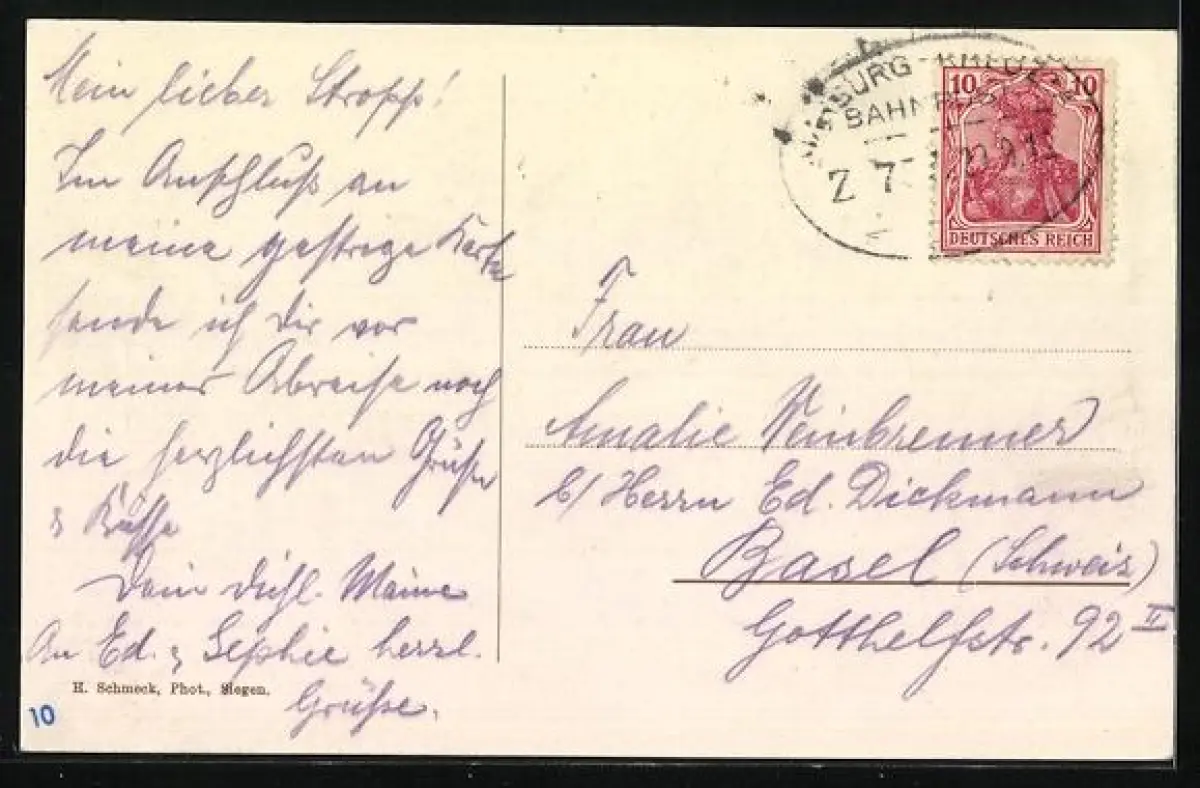 Mein lieber Stropp!
Im Anschluß an
meine gestrige Karte
sende ich Dir vor
meiner Abreise noch
die herzlichsten Grüße
& Küsse
Dein
An Ed. & Sephie herzl.
Grüße.
H. Schmeck, Phot., Siegen.
10
BAHNPOST
Z 7
10 10
DEUTSCHES REICH
Frau
Amalie Weinbrenner
b/ Herrn Ed. Dickmann
Basel (Schweiz)
Gotthelfstr. 92 II